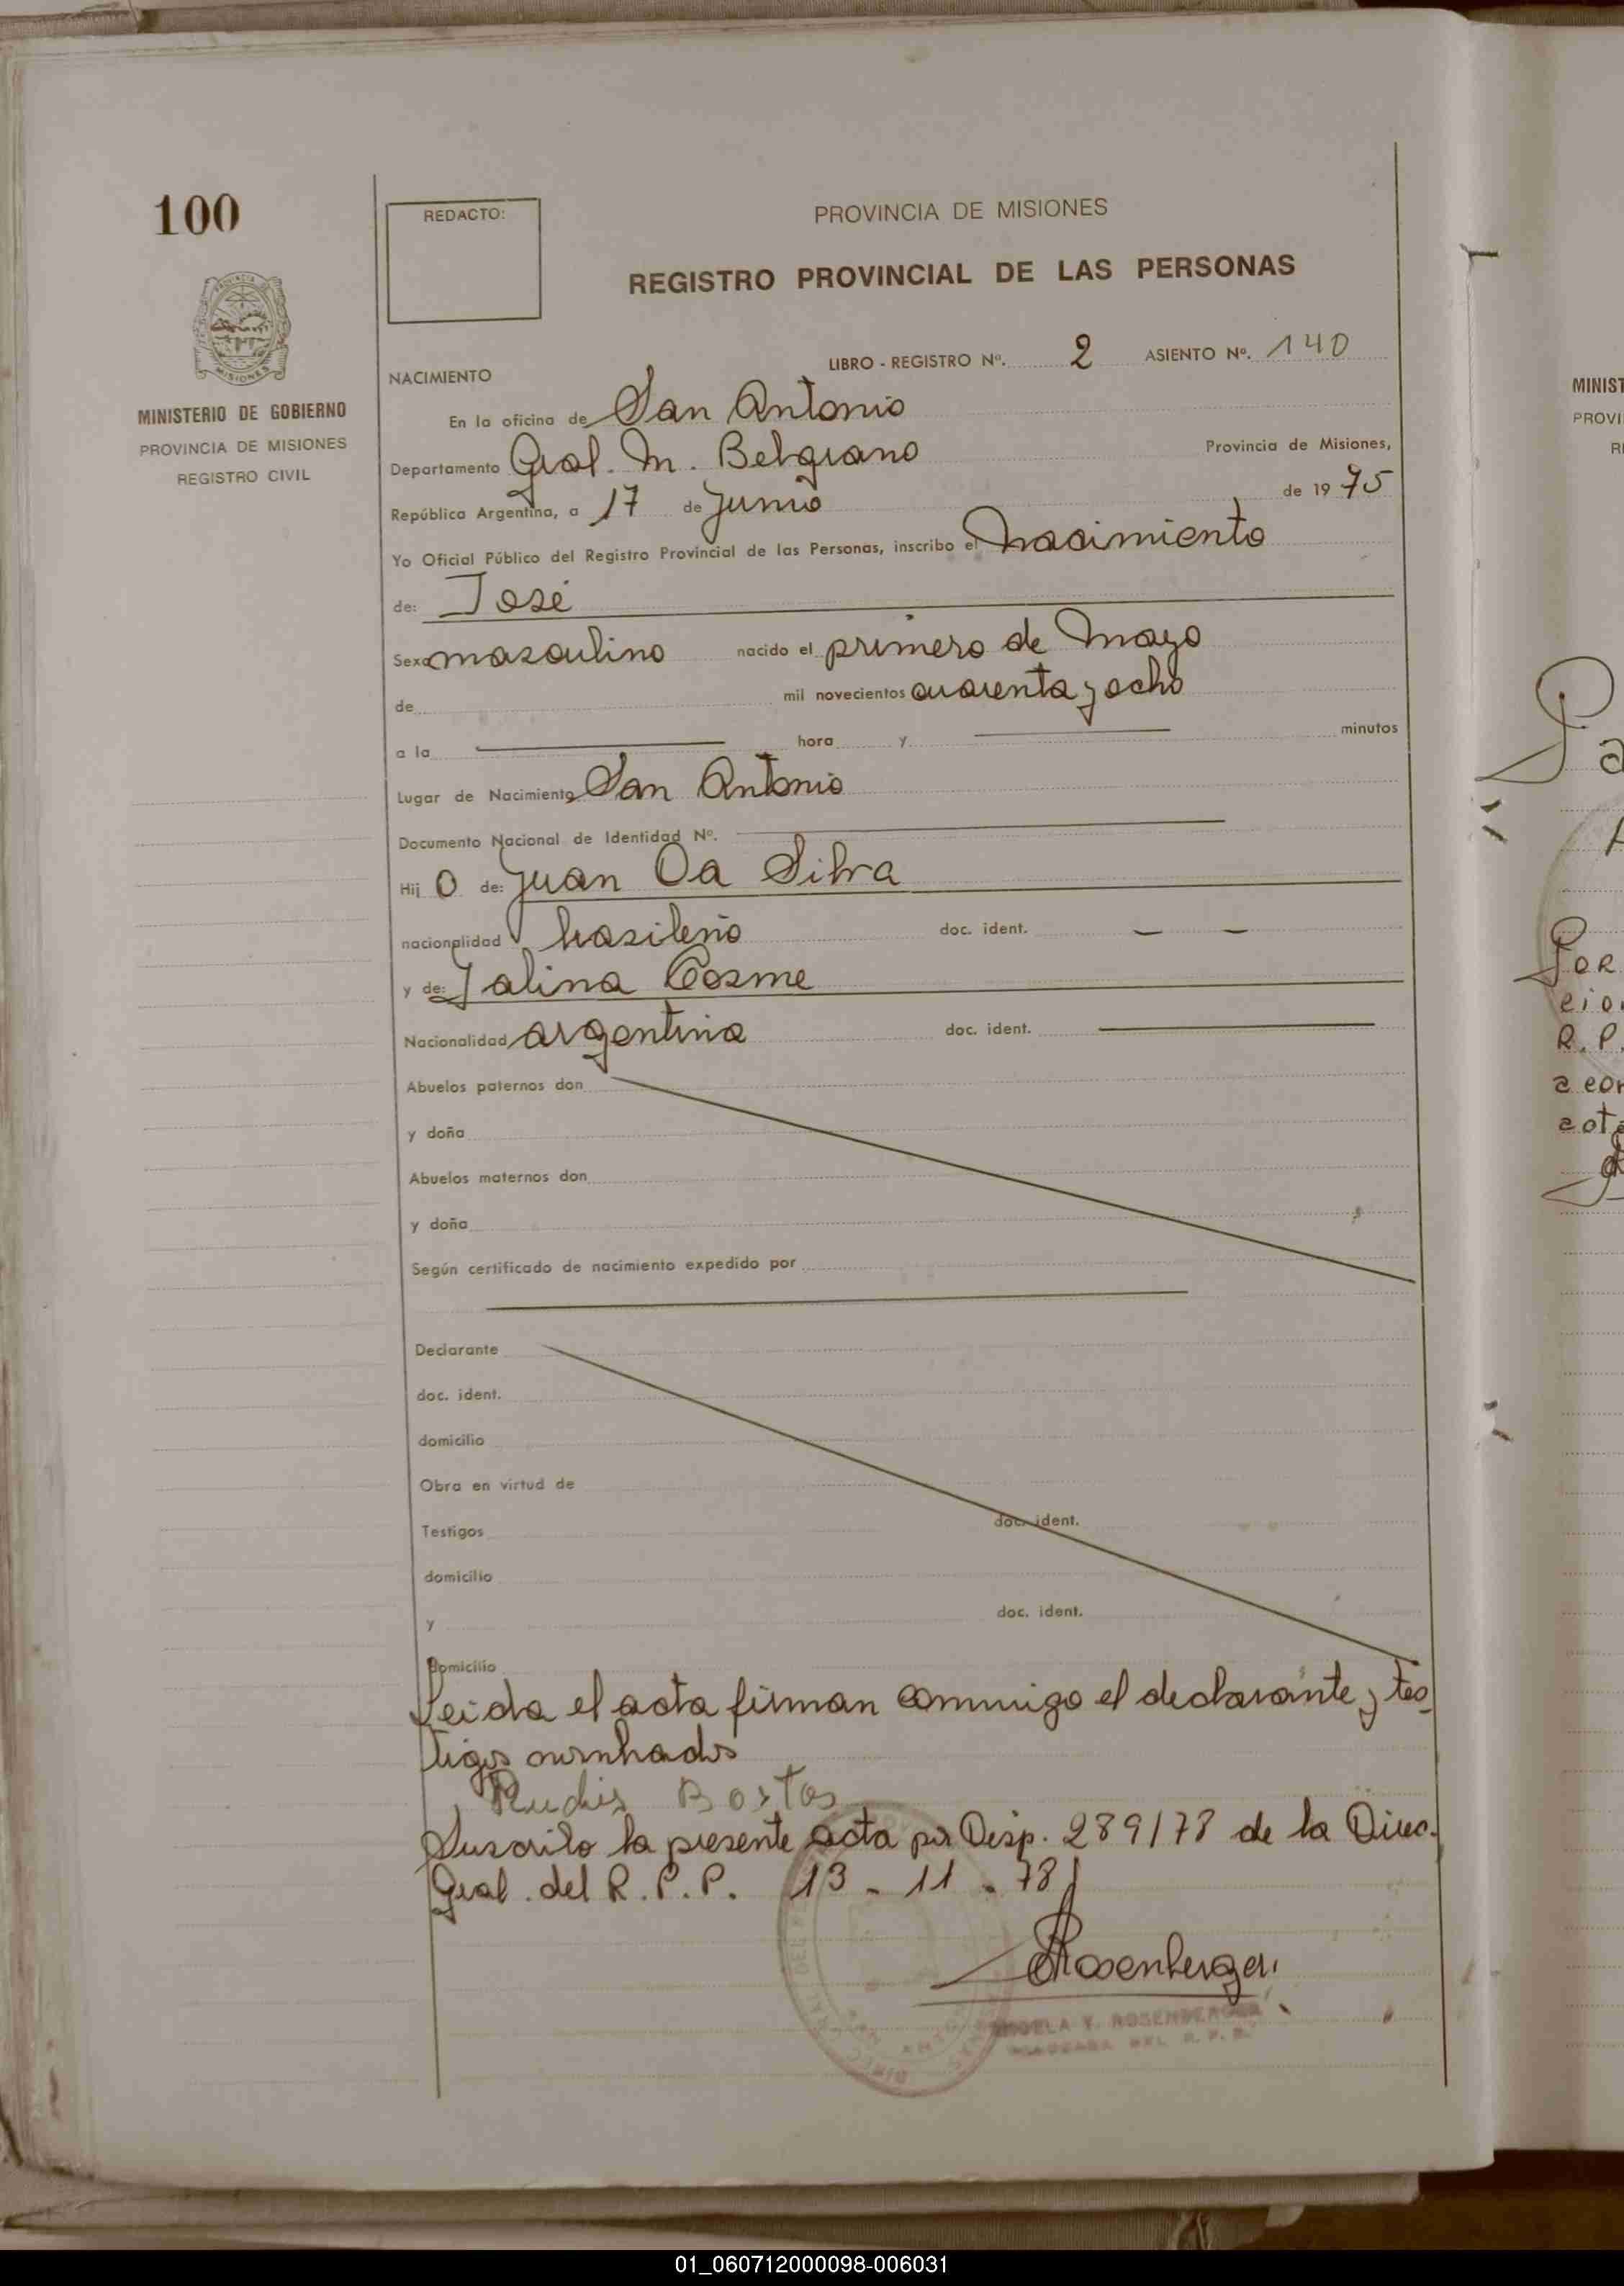 100
REDACTO:
PROVINCIA DE MISIONES
REGISTRO PROVINCIAL DE LAS PERSONAS
MISIONES
MINISTERIO DE GOBIERNO
PROVINCIA DE MISIONES
REGISTRO CIVIL
LIBRO - REGISTRO Nº. 2 ASIENTO Nº. 140
NACIMIENTO
En la oficina de San Antonio
Departamento Gral. M. Belgrano Provincia de Misiones,
República Argentina, a 17 de Junio de 1975
Yo Oficial Público del Registro Provincial de las Personas, inscribo el nacimiento
de: José
Sexo masculino nacido el primero de Mayo
de mil novecientos cuarenta y ocho
a la hora y minutos
Lugar de Nacimiento San Antonio
Documento Nacional de Identidad Nº.
Hij o de: Juan Da Silva
nacionalidad brasileño doc. ident. — —
y de: Jalina Cosme
Nacionalidad argentina doc. ident.
Abuelos paternos don
y doña
Abuelos maternos don
y doña
Según certificado de nacimiento expedido por
Declarante
doc. ident.
domicilio
Obra en virtud de
Testigos doc. ident.
domicilio
y doc. ident.
domicilio
Leida el acta firman conmigo el declarante y tes-
tigos nombrados
Bastos
Suscribo la presente acta por Disp. 289/78 de la Direc.
Gral. del R.P.P. 13 - 11 - 78
Rosenberger
ANGELA Y. ROSENBERGER
MINIST
PROVI
R
Por
cio
R.P.
a con
acta
01_060712000098-006031